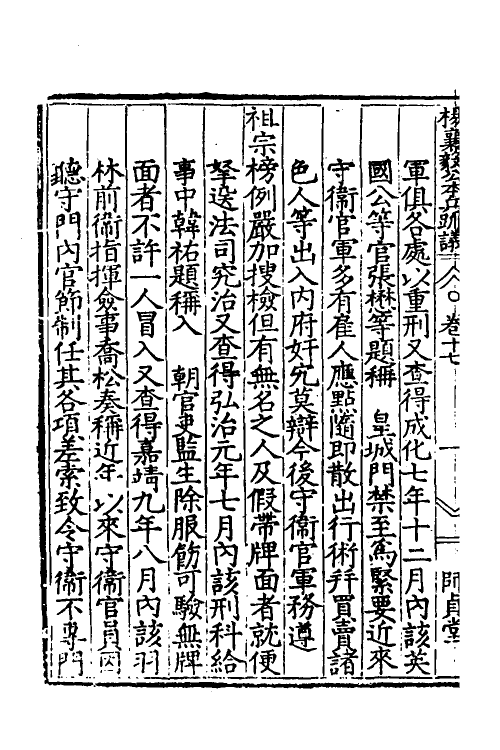 楊襄毅公本兵疏議 卷十七 師貞堂
軍俱各處以重刑又查得成化七年十二月內該英
國公等官張懋等題稱 皇城門禁至爲緊要近來
守衞官軍多有雇人應點隨即散出行術拜買賣諸
色人等出入內府奸宄莫辯今後守衞官軍務遵
祖宗榜例嚴加搜檢但有無名之人及假帶牌面者就便
拏送法司究治又查得弘治元年七月內該刑科給
事中韓祐題稱入 朝官吏監生除服飭可驗無牌
面者不許一人冒入又查得嘉靖九年八月內該羽
林前衞指揮僉事喬松奏稱近年以來守衞官員因
聽守門內官節制任其各項差索致令守衞不專門